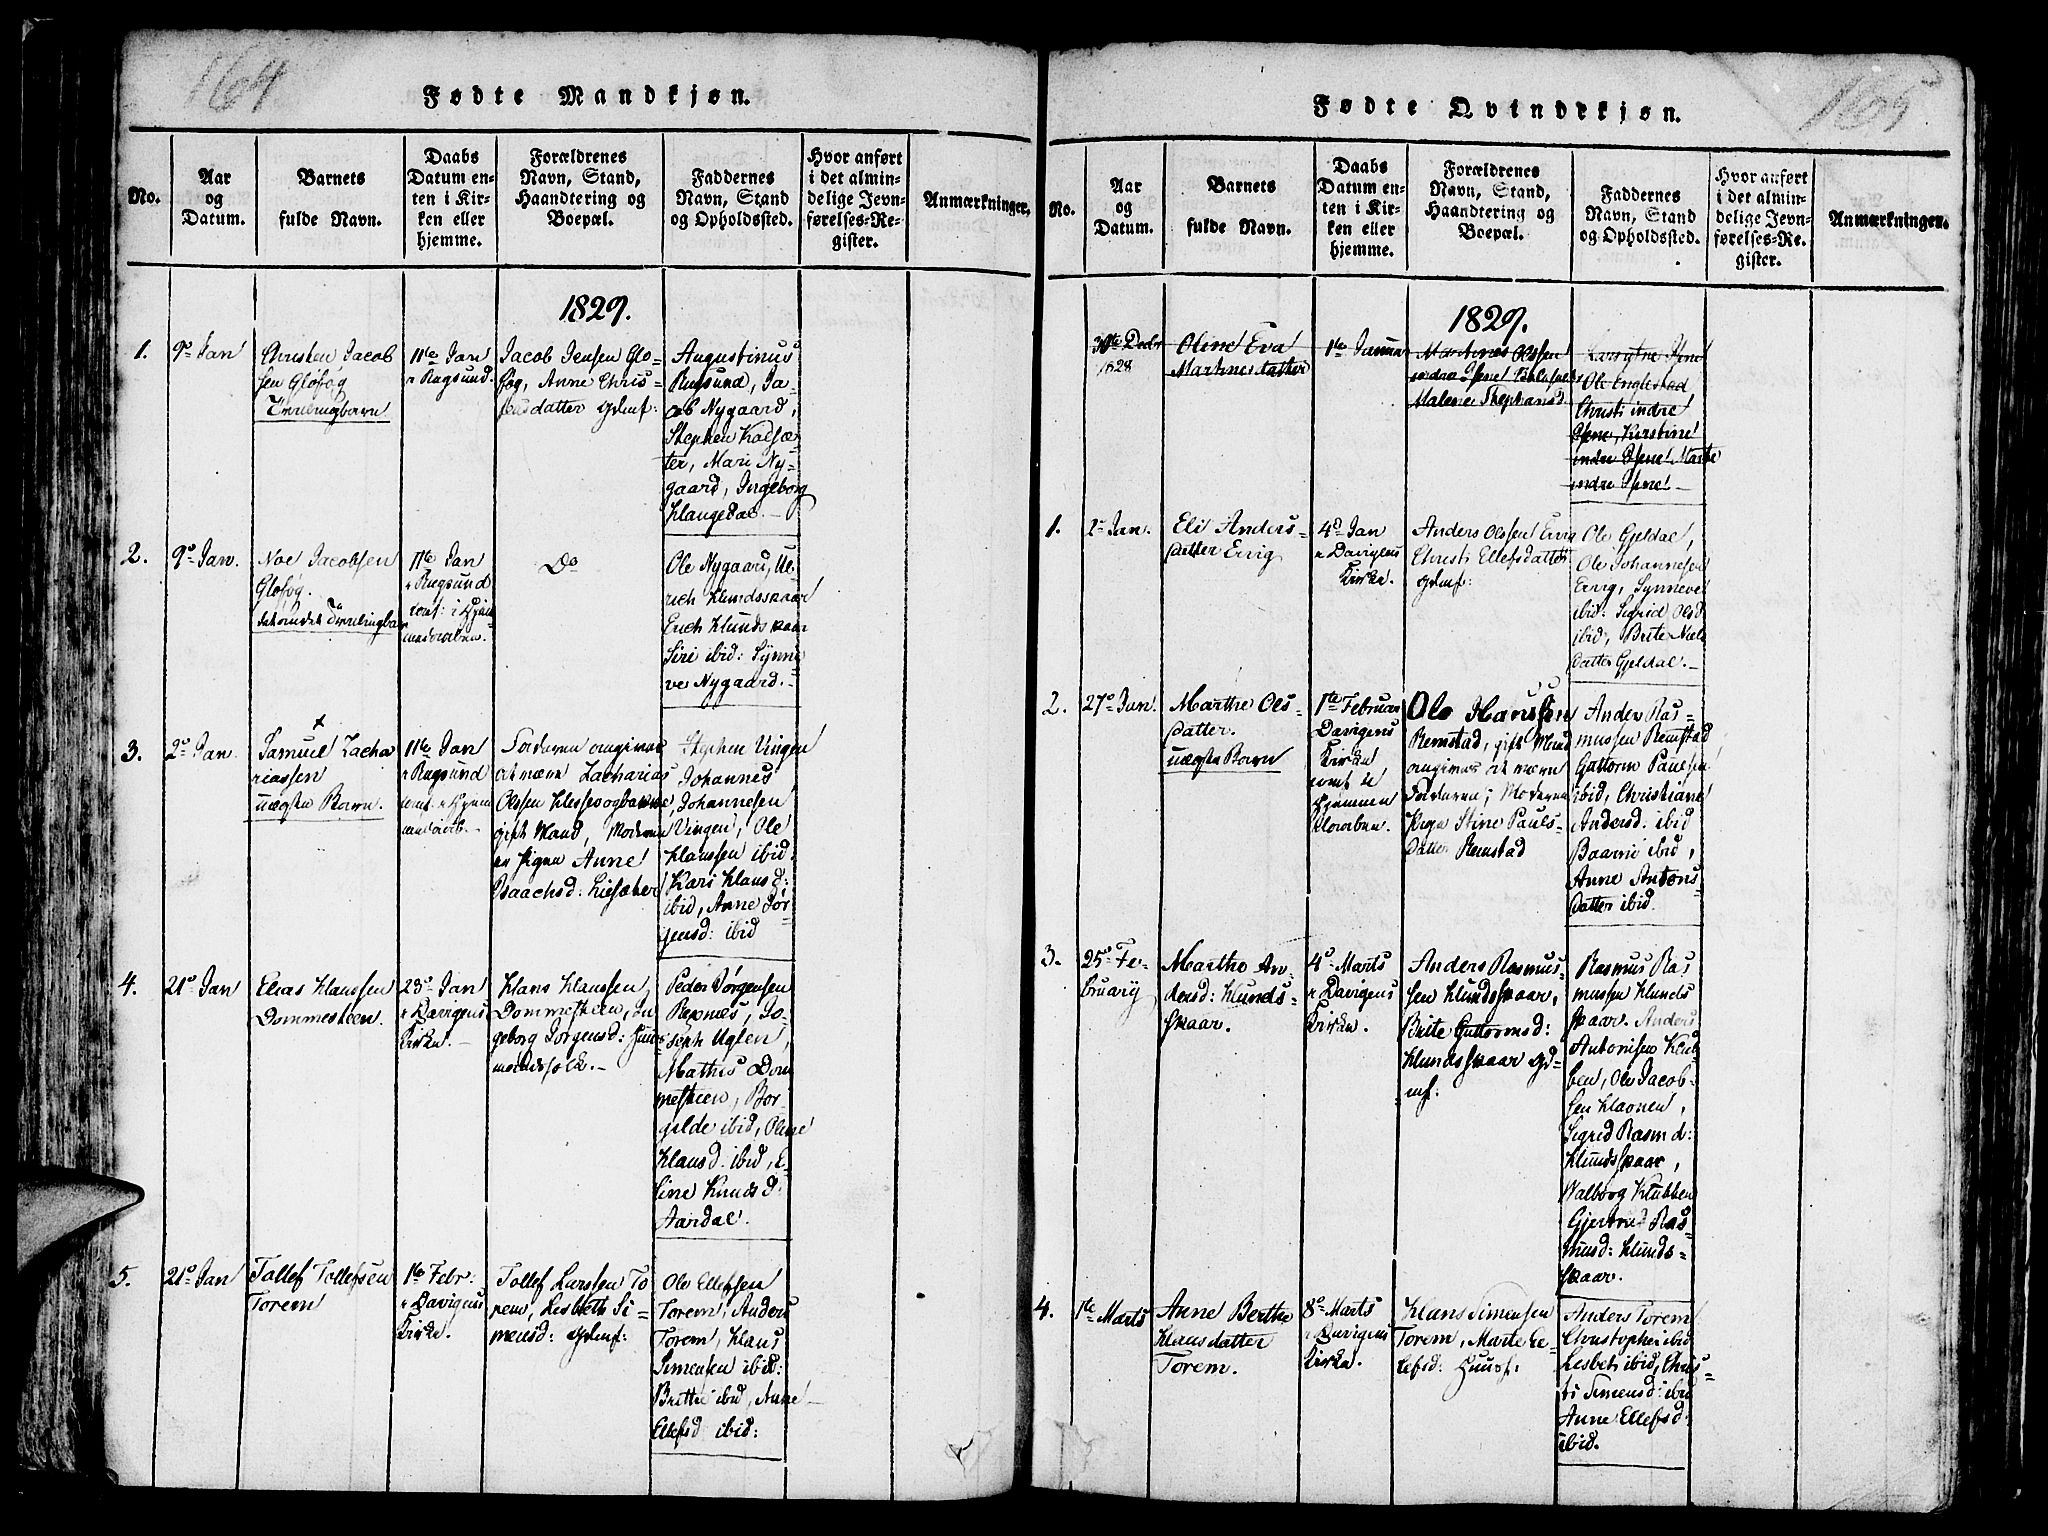 164
Fødte Mandkjøn.
No.
Aar
og
Datum.
Barnets
fulde Navn.
Daabs
Datum en-
ten i Kir-
ken eller
hjemme.
Forældrenes
Navn, Stand,
Haandtering og
Boepæl.
Faddernes
Navn, Stand
og Opholdssted.
Hvor anført
i det almin-
delige Jevn-
førelses-Re-
gister.
Anmærkninger.
1829.
1.
9de Jan
Christen Jacob
sen Gløføg
Tvillingbarn
11te Jan
i Rugsund
Jacob Jensen Glø-
føg, Anne Chris-
tensdatter gdmf:
Augustinus
Rugsund, Ja-
cob Nygaard,
Stephen Kalsæ-
ter, Mari Ny-
gaard, Ingeborg
Klaugedal.
2.
9de Jan.
Noe Jacobsen
Gløføg.
Tvillingbarn
11te Jan
i Rugsund
Do
Ole Nygaard, Ul-
rich Hundsskaar
Erich Hundskaar
Siri ibid: Synne
ve Nygaard.
3.
2de Jan.
Samuel Zacha
riassen
uægte Barn.
11te Jan
i Rugsund
Faderen angives
at være Zacharias
Olssen
gift Mand, Moderen
er Pigen Anne
Isaachsd: Liesæter
Stephen Vingen
Johannes
Johannesen
Vingen, Ole
Klaussen ibid.
Kari Klausd:
ibid, Anne Jør-
gensd: ibid
4.
21de Jan
Elias Klaussen
Dommesteen.
23de Jan
i Davigens
Kirke.
Klaus Klaussen
Dommesteen, In
geborg Jørgensd: Huus
mandsfolk.
Peder Jørgensen
Reknes, Jo-
seph Uglen,
Mathis Dom
mesteen, Bor-
gilde ibid, Oline
Klausd. ibid, E-
line Knudsd:
Aardal.
5.
21de Jan
Tollef Tollefsen
Torem
1te Febr:
i Davigens
Kirke.
Tollef Larssen To
rem, Lisbeth Si-
mensd: gdmf:
Ole Ellefsen
Torem, Anders
Torem, Klaus
Simensen ibid:
Brithe ibid, Anne
Ellefsd ibid:
165
Fødte Qvindekjøn.
No.
Aar
og
Datum.
Barnets
fulde Navn.
Daabs
Datum en-
ten i Kir-
ken eller
hjemme.
Forældrenes
Navn, Stand,
Haandtering og
Boepæl.
Faddernes
Navn, Stand
og Opholdssted.
Hvor anført
i det almin-
delige Jevn-
førelses-Re-
gister.
Anmærkninger.
1829.
30te Decbr
1828
Oline Eva
Martinesdatter
1te Januar
Martines Olssen
Malene Stephansd
Ole Englestad
Christi indre
Kirstine
indre
Marthe
indre
1.
1te Jan.
Eli Anders-
datter Errig
4de Jan
i Davigens
Kirke.
Anders Olssen Errig
Christi Ellefsdatter
gdmf:
Ole Gjeldal,
Ole Johannesen
Errig, Synneve
ibid: Sigrid Olsd
ibid, Brite Niels
datter Gjeldal.
2.
27de Jan.
Marthe Ols-
datter.
uægte Barn
1te Februar
Davigens
Kirke
Ole Hanssen
Remstad, gift Mand
angives at være
Faderen; Moderen
Stine Pauls-
datter Remstad
Anders Ras-
mussen Remstad
Guttorm Paulsen
ibid, Christiane
Andersd. ibid
Baarni ibid,
Anne Antons-
datter ibid.
3.
25de Fe-
bruary
Marthe An-
dersd: Hunds-
skaar.
4de Marts
i Davigens
Kirke.
Anders Rasmus-
sen Hundsskaar,
Brite Guttormsd:
Hundsskaar gd-
mf:
Rasmus Ras
mussen Hunds
skaar. Anders
Antonisen Klub-
ben, Ole Jacob-
sen
Sigrid Rasmd:
Hundsskaar,
Walborg Klubben
Gjertrud Ras-
musd: Hunds-
skaar.
4.
1te Marts
Anne Berthe
Klausdatter
Torem.
8de Marts
i Davigens
Kirke.
Klaus Simensen
Torem, Marte El-
lefsd: Huusf:
Anders Torem
Christopher ibid
Lisbet ibid, Chris-
ti Simensd: ibid
Anne Ellefsd:
ibid.